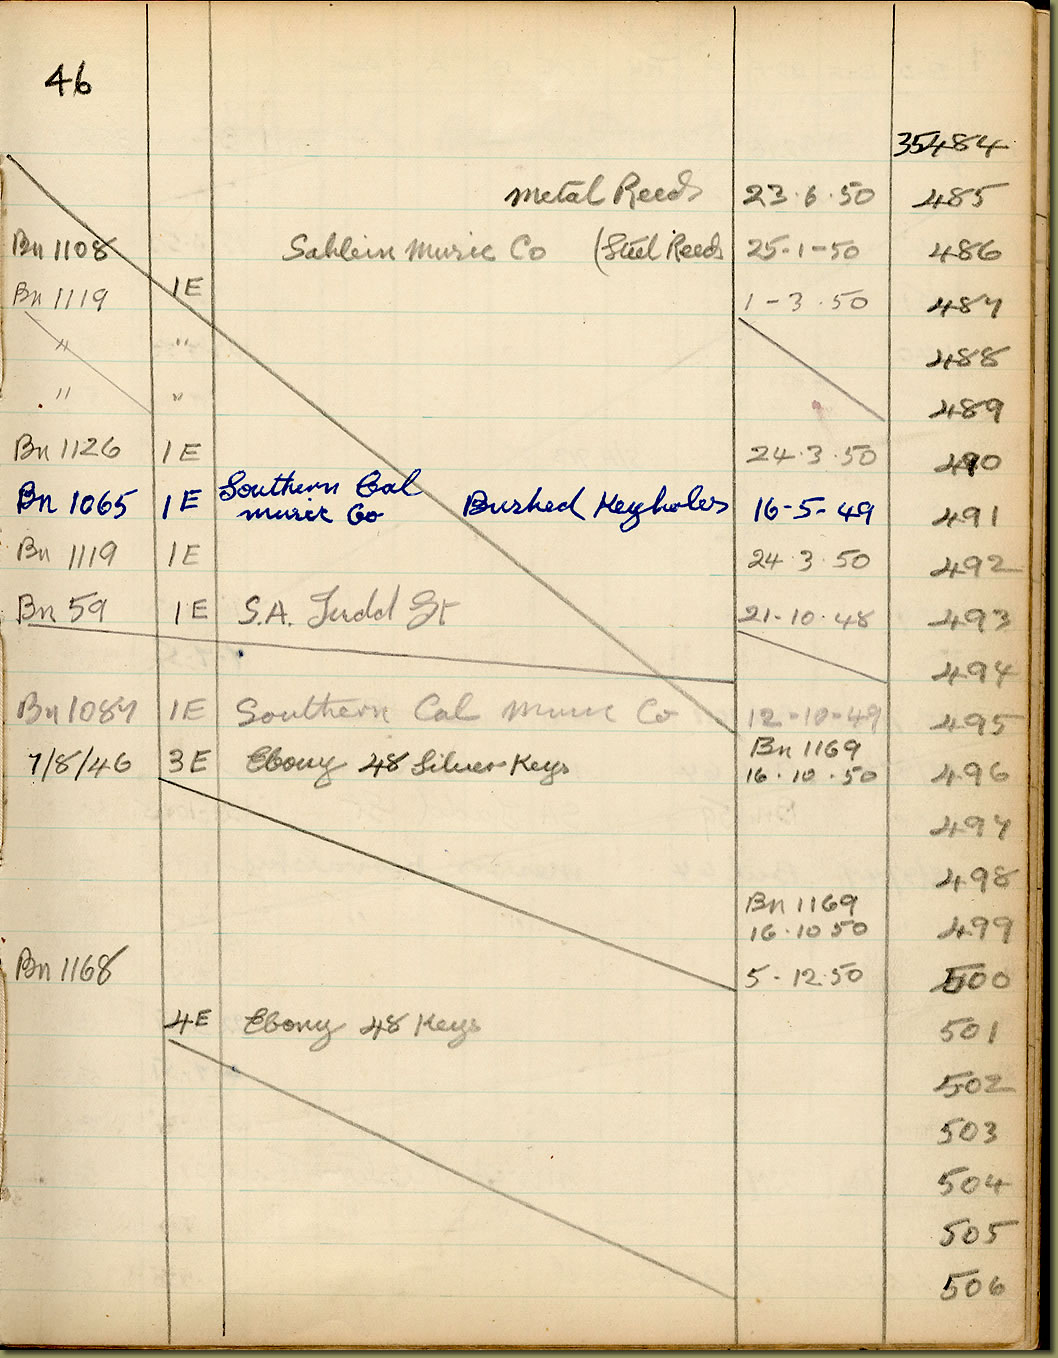 46
35484
Metal Reeds 23·6·50 485
Bn 1108 Sahlein Music Co (Steel Reeds 25-1-50 486
Bn 1119 1E 1-3·50 487
" " 488
" " 489
Bn 1126 1E 24·3·50 490
Bn 1065 1E Southern Cal Music Co Bushed Keyholes 16-5-49 491
Bn 1119 1E 24·3·50 492
Bn 59 1E S.A. Judd St 21-10·48 493
494
Bn 1087 1E Southern Cal Music Co 12-10-49 495
7/8/46 3E Ebony 48 Silver Keys Bn 1169 16·10·50 496
497
498
Bn 1169 16·10 50 499
Bn 1168 5-12·50 500
4E Ebony 48 Keys 501
502
503
504
505
506